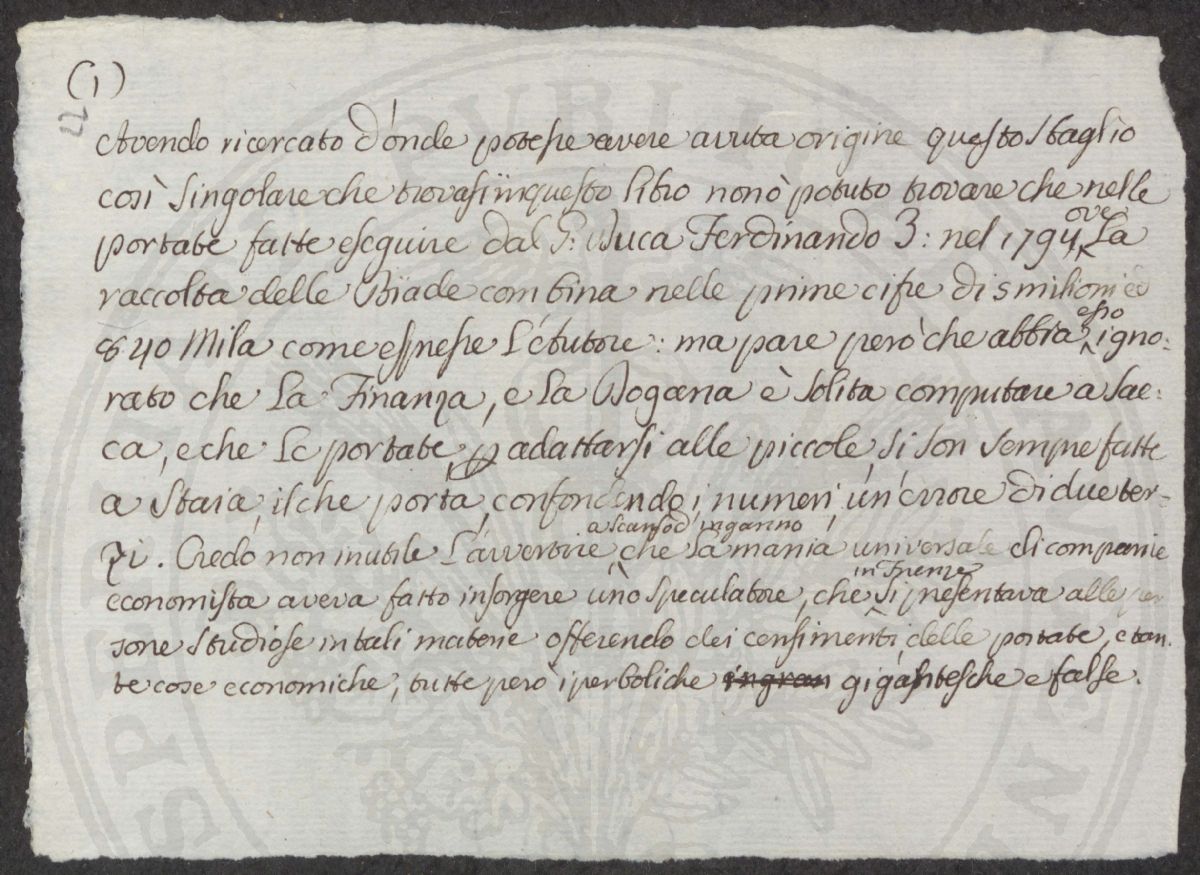 (1)
22
Avendo ricercato d'onde potesse avere avuta origine questo sbaglio
così singolare che trovasi in questo libro non ò potuto trovare che nelle
portate fatte eseguire dal G: Duca Ferdinando 3: nel 1794 ove La
raccolta delle Biade combina nelle prime cifre di 5 milioni ed
840 Mila come espresse L'Autore: ma pare però che abbia esso igno:
rato che La Finanza, e La Dogana è solita computare a Sac:
ca, e che Le portate p adattarsi alle piccole, si son sempre fatte
a Staia, il che porta, confondendo i numeri, un'errore di due ter-
zi. Credo non inutile L'avvertire a scanso d'inganno, che La mania universale di comparire
economista aveva fatto insorgere uno speculatore, che in Firenze si presentava alle per
sone studiose in tali materie offerendo dei censimenti, delle portate, e tan-
te cose economiche, tutte però iperboliche ingran gigantesche e false.